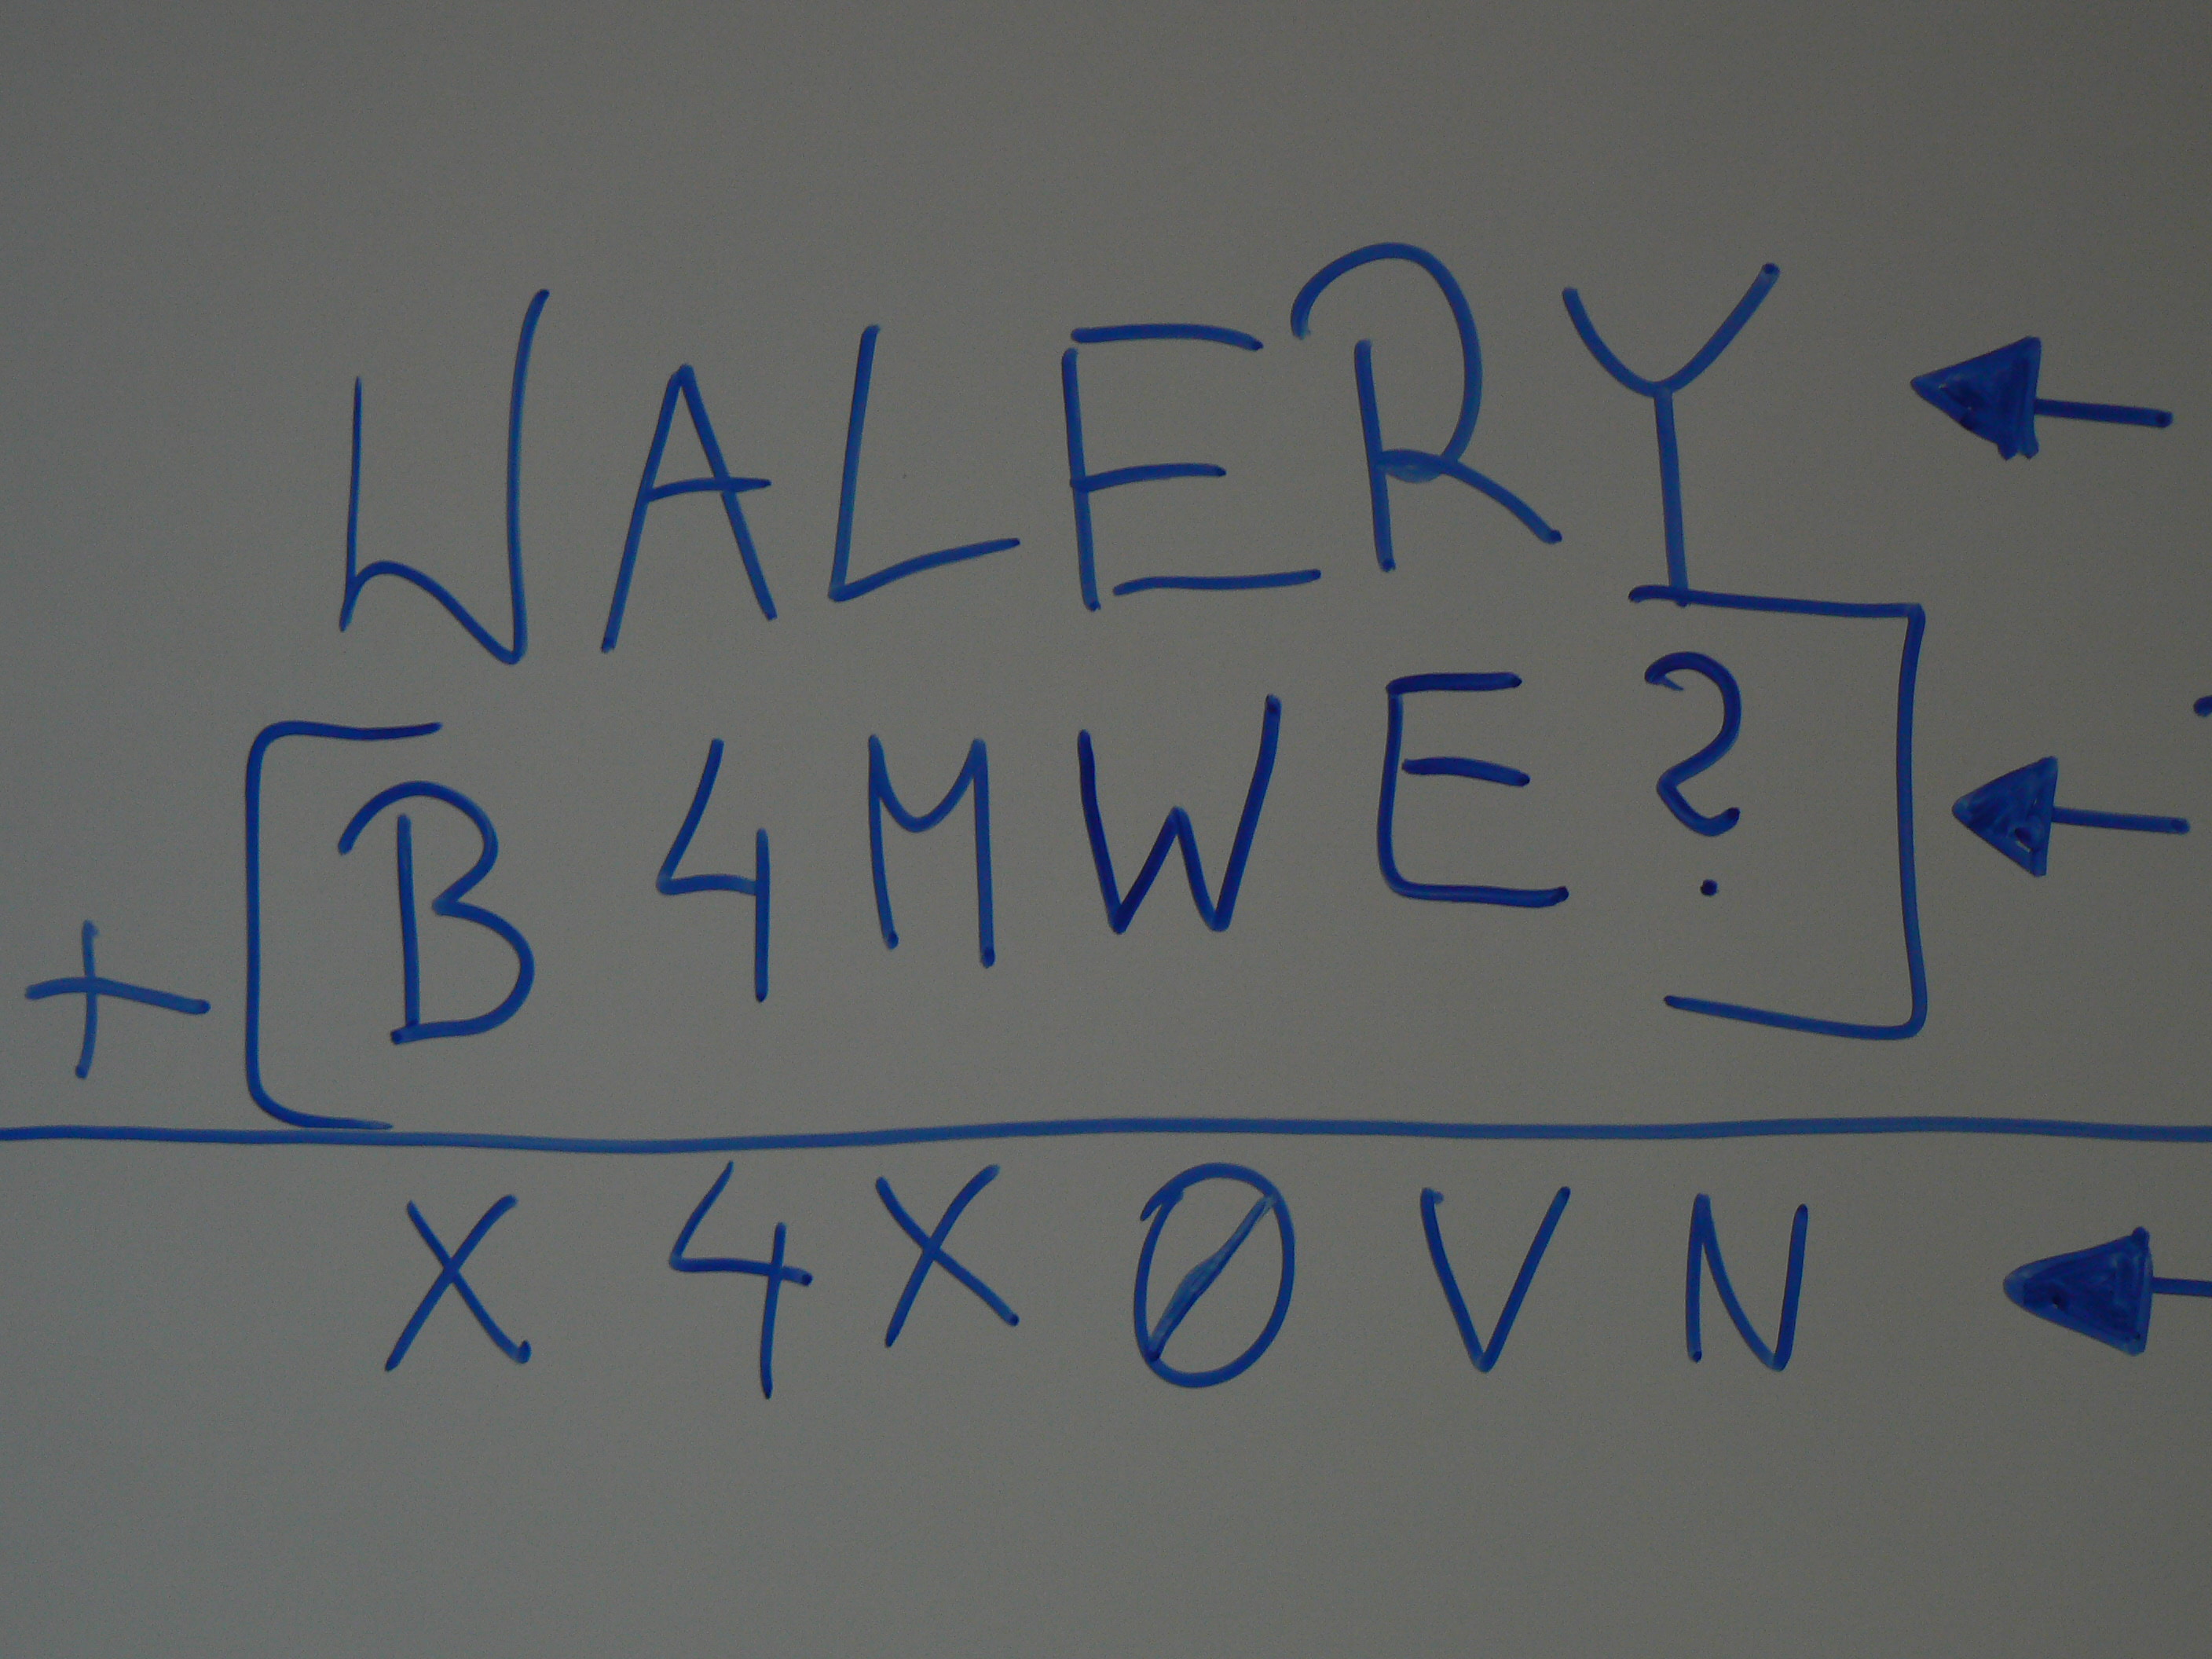 WALERY
+ [B4MWE?]
X4XØVN